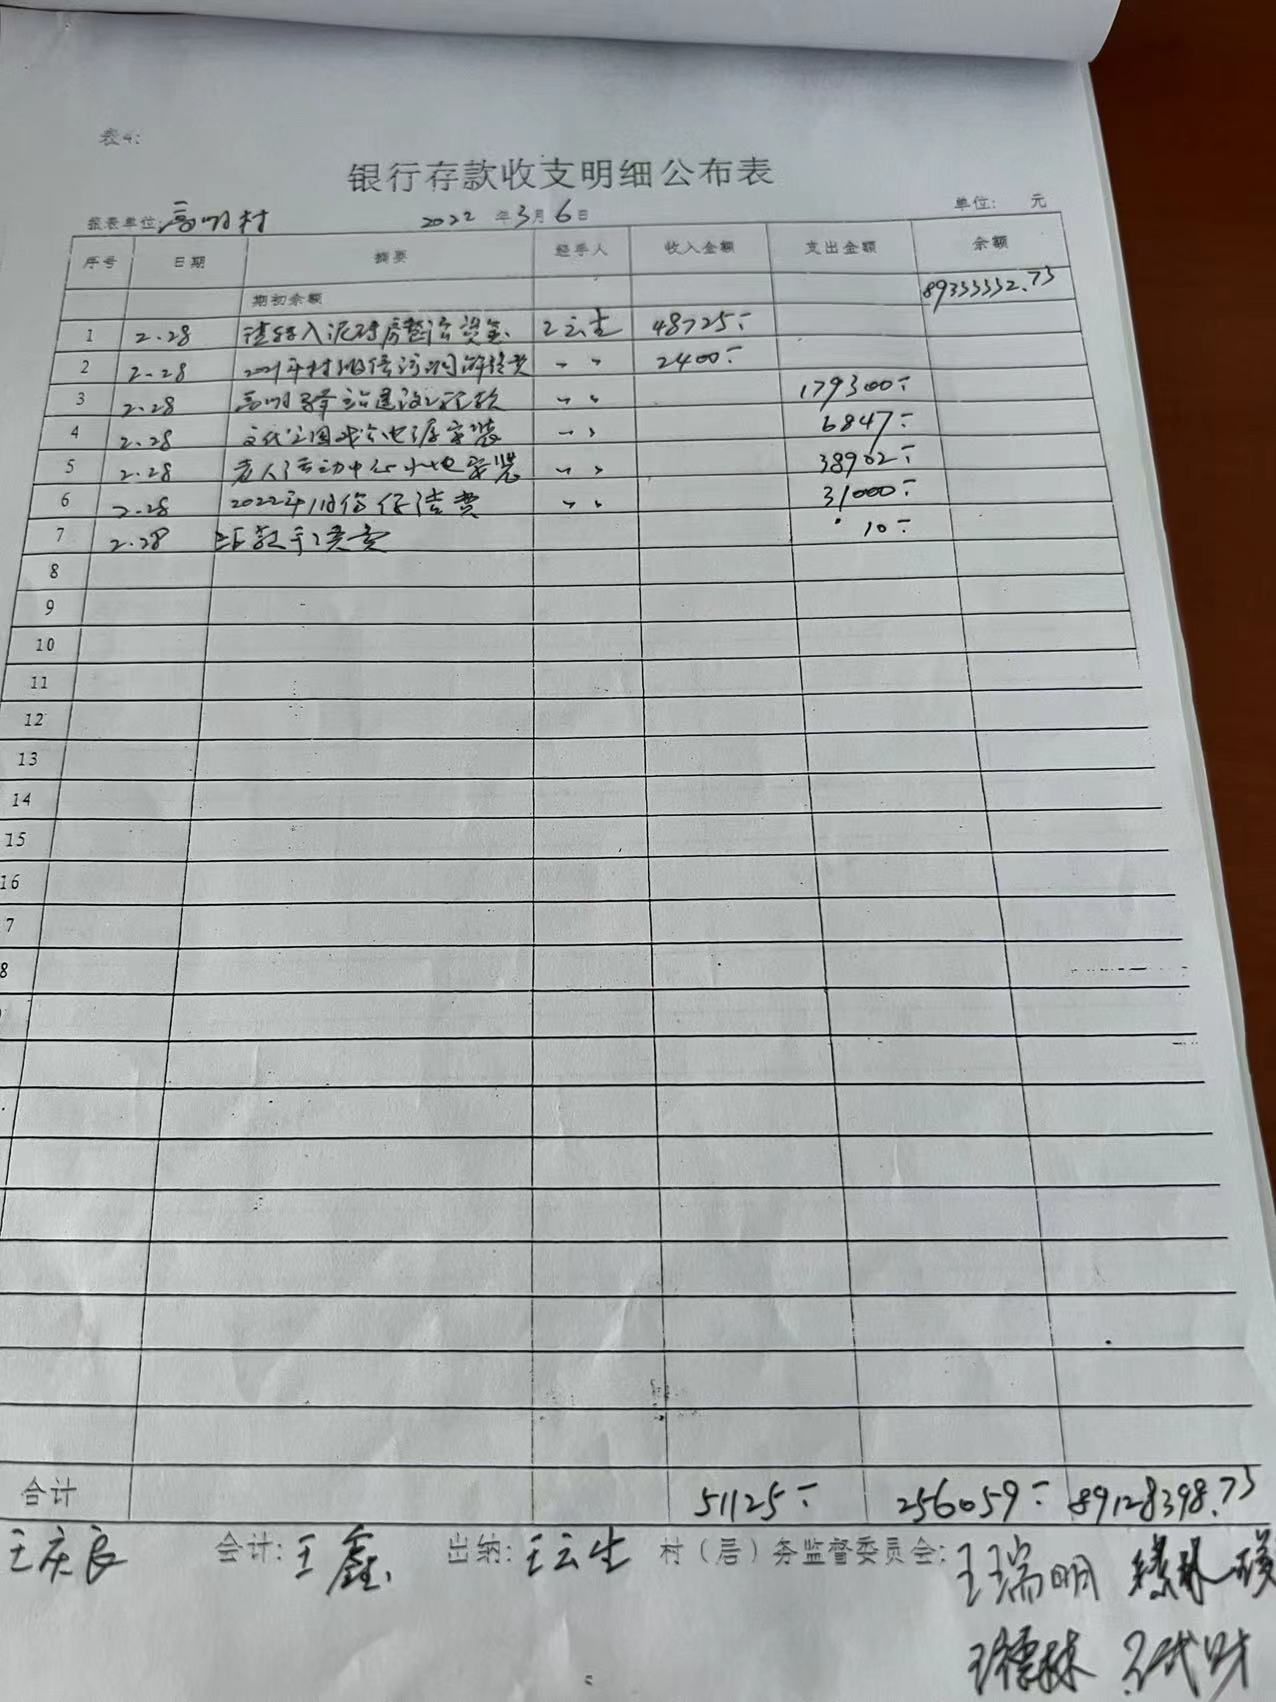 表4:
银行存款收支明细公布表
报表单位:高明村 2022年3月6日 单位: 元
序号 日期 摘要 经手人 收入金额 支出金额 余额
期初余额 89333332.73
1 2.28 入泥对房整治资金 王云生 48725.-
2 2.28 2021年村级 费 〃 2400.-
3 2.28 高明驿站建设工程款 〃 179300.-
4 2.28 文化公园戏台电源安装 〃 6847.-
5 2.28 老人活动中心水电安装 〃 38902.-
6 2.28 2022年1月份保洁费 〃 31000.-
7 2.28 手续费 10.-
8
9
10
11
12
13
14
15
16
7
8
合计 51125.- 256059.- 89128398.73
王庆良 会计:王鑫 出纳:王云生 村(居)务监督委员会:王瑞明